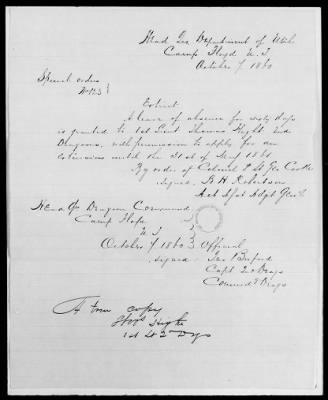 Head Qrs Department of Utah
Camp Floyd U.T.
October 7 1860
Special orders
No 123
Extract
A leave of absence for sixty days
is granted to 1st Lieut Thomas Hight 2nd
Dragoons, with permission to apply for an
extension until the 31st of May 1861
By order of Colonel P St Geo Cooke
signed, B H Robertson
Act Asst Adjt Genl
Head Qrs Dragoon Command
Camp Floyd
U T
October 7 1860 Official
signed Jno Buford
Capt 2d Drags
Command Drags
A true copy
Thos Hight
1st Lt 2d Dgs